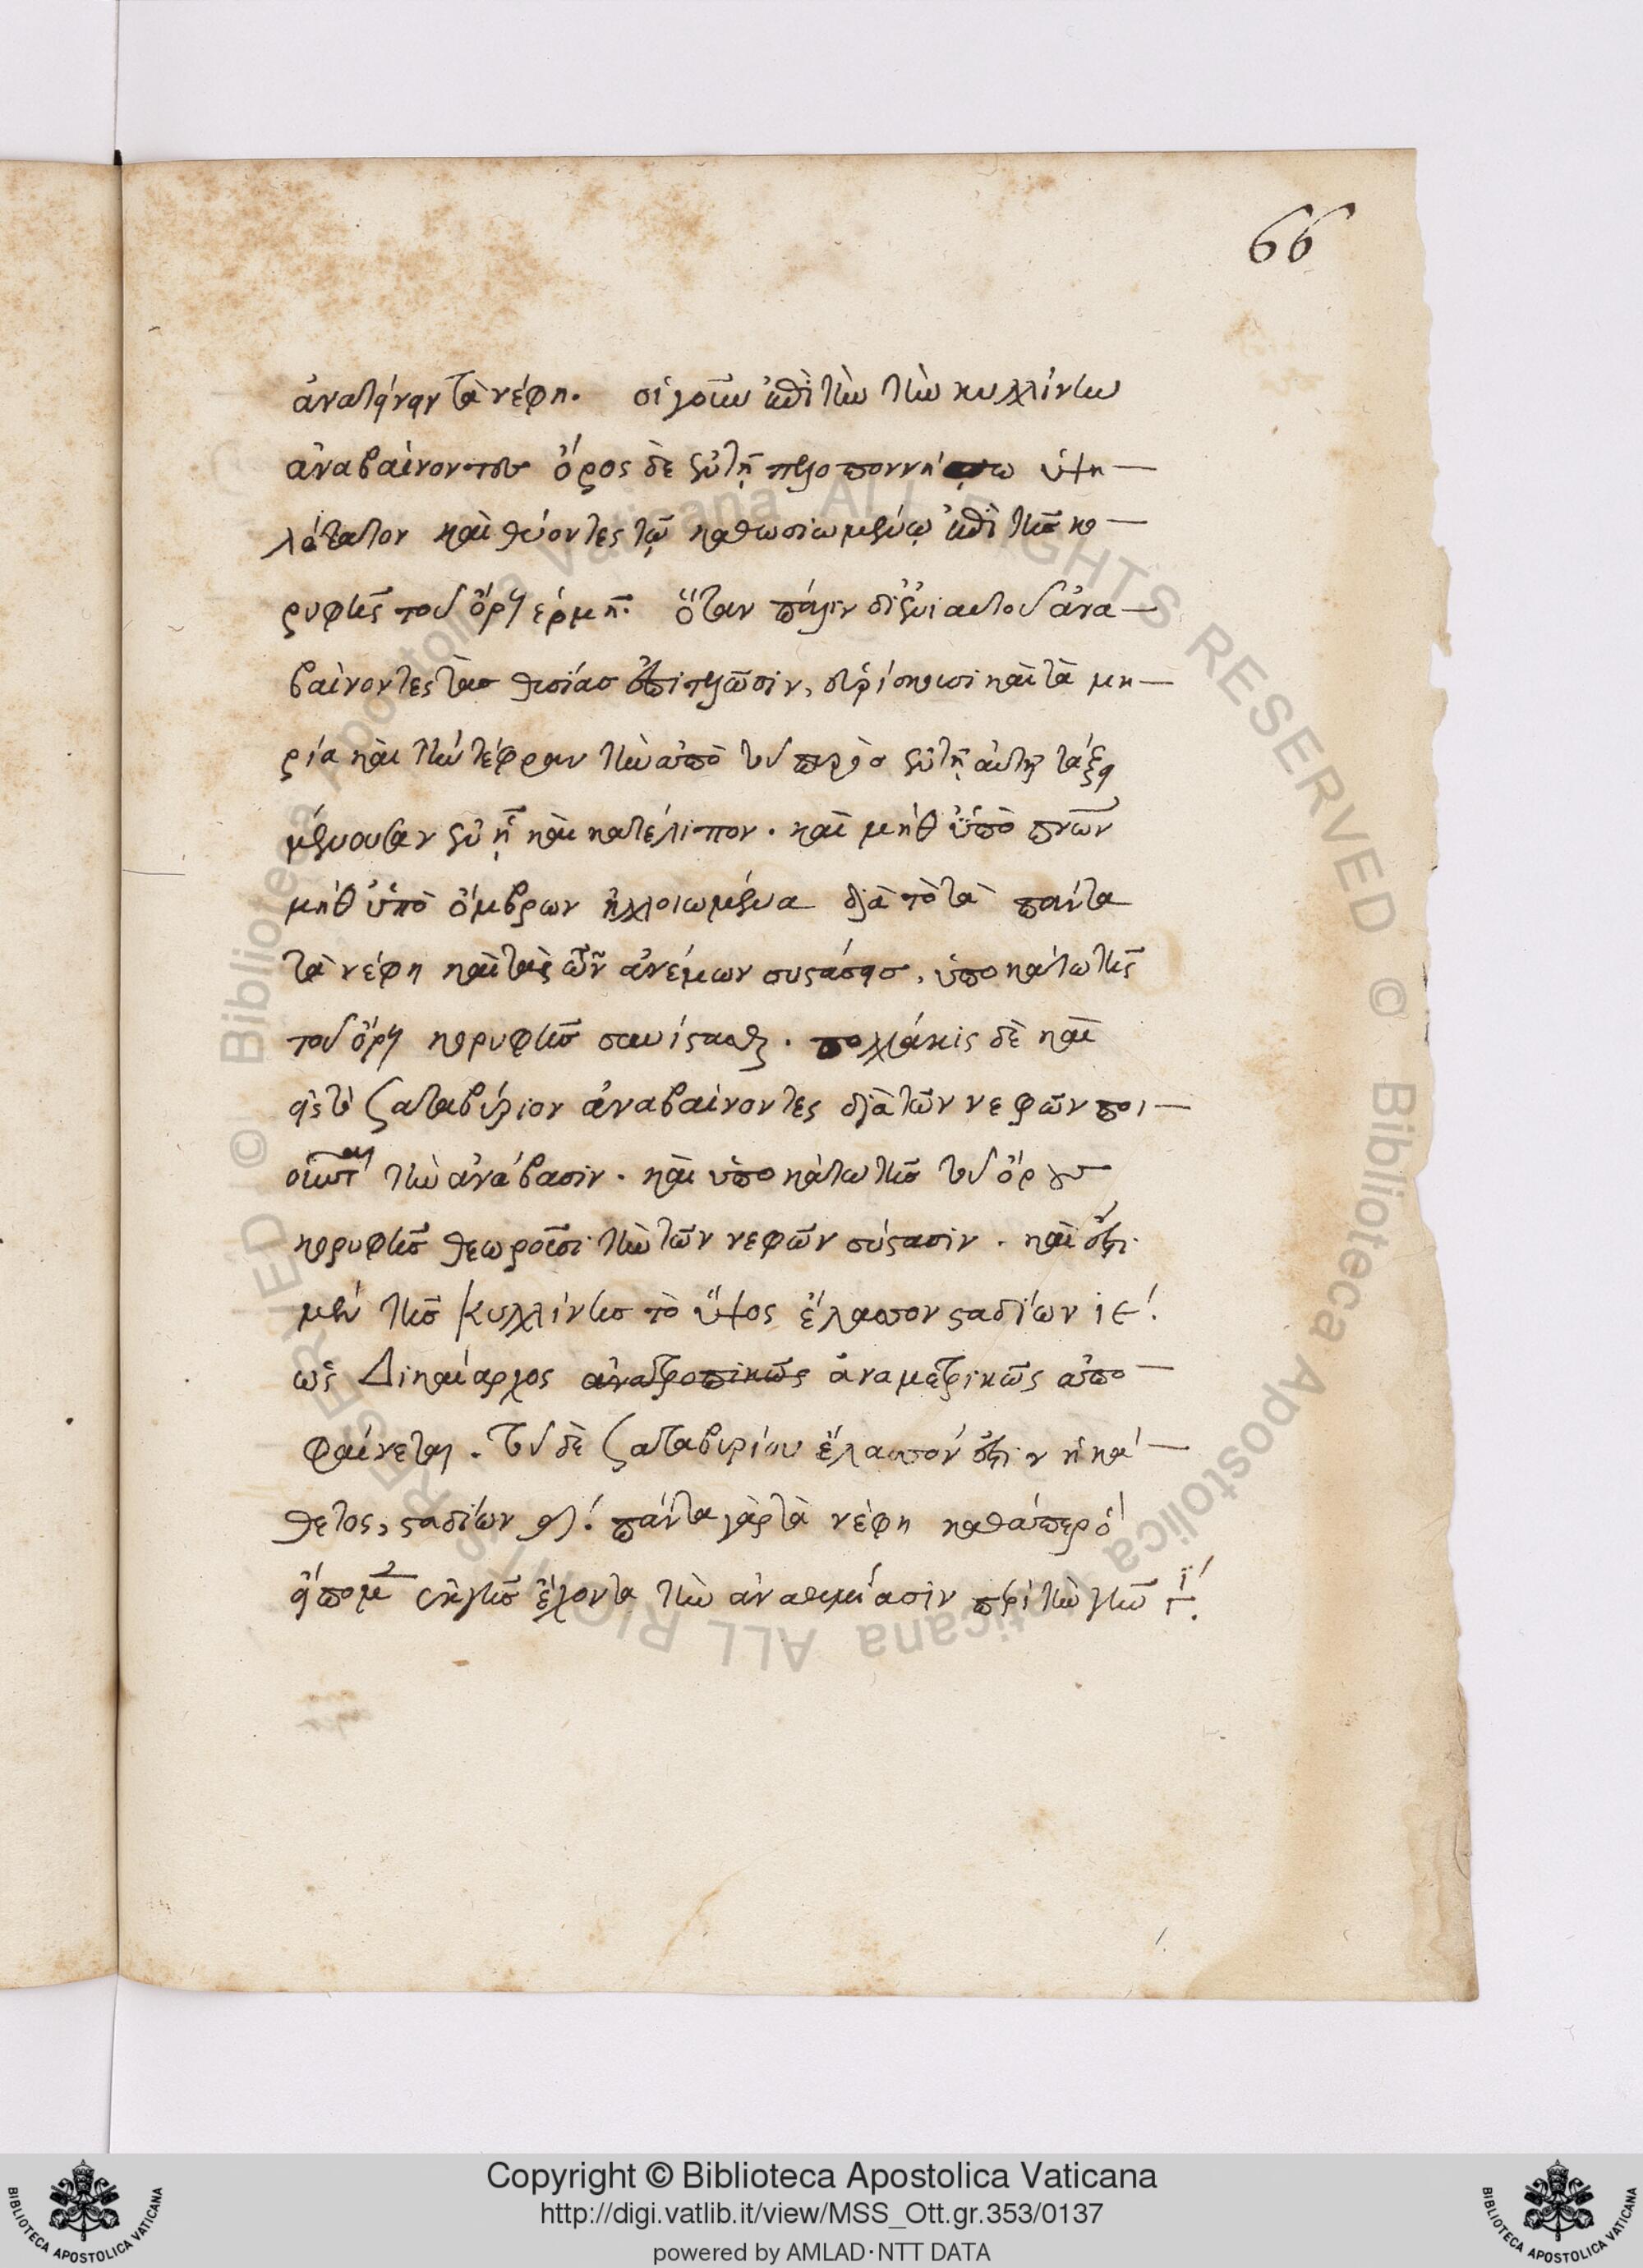 66
ἀνατείνειν τὰ νέφη. οἱ γοῦν ἐπὶ τὴν τὴν κυλλήνην
ἀναβαίνοντες ὄρος δὲ ἐν τῇ πελοποννήσω ὑψη-
λότατον καὶ θύοντες τῷ καθωσιωμένῳ ἐπὶ τῆς κο-
ρυφῆς τοῦ ὄρους ἑρμῇ. ὅταν πάλιν δι ἐνιαυτοῦ ἀνα-
βαίνοντες τὰς θυσίας ἐπιτελῶσιν, εὑρίσκουσι καὶ τὰ μη-
ρία καὶ τὴν τέφραν τὴν ἀπὸ τοῦ πυρὸς ἐν τῇ αὐτῇ τάξει
μένουσαν ἐν ᾗ καὶ κατέλιπον. καὶ μήθ ὑπὸ πνῶν
μήθ ὑπὸ ὄμβρων ἠλλοιωμένα διὰ τὸ τὰ πάντα
τὰ νέφη καὶ τὰς τῶν ἀνέμων συστάσεις, ὑποκάτω τῆς
τοῦ ὄρους κορυφῆς συνίστασθαι. πολλάκις δὲ καὶ
εἰς τὸ ζαταβύριον ἀναβαίνοντες διὰ τῶν νεφῶν ποι-
οῦνται τὴν ἀνάβασιν. καὶ ὑποκάτω τῆς τοῦ ὄρους
κορυφῆς θεωροῦσι τὴν τῶν νεφῶν σύστασιν. καὶ ἔστι
μὲν τῆς Κυλλήνης τὸ ὕψος ἔλασσον σταδίων ιε΄.
ὡς Δικαίαρχος ἀναμετρικῶς ἀπο-
φαίνεται. τοῦ δὲ ζαταβυρίου ἔλασσόν ἐστιν ἡ κά-
θετος, σταδίων πάντα γὰρ τὰ νέφη καθάπερ ὁ
εἴπομεν ἐκ γῆς ἔχοντα τὴν ἀναθυμίασιν περὶ τὴν γῆν
Copyright © Biblioteca Apostolica Vaticana
http://digi.vatlib.it/view/MSS_Ott.gr.353/0137
powered by AMLAD·NTT DATA
BIBLIOTECA APOSTOLICA VATICANA
BIBLIOTECA APOSTOLICA VATICANA
© Biblioteca Apostolica Vaticana ALL RIGHTS RESERVED © Biblioteca Apostolica Vaticana ALL RIGHTS RESERVED